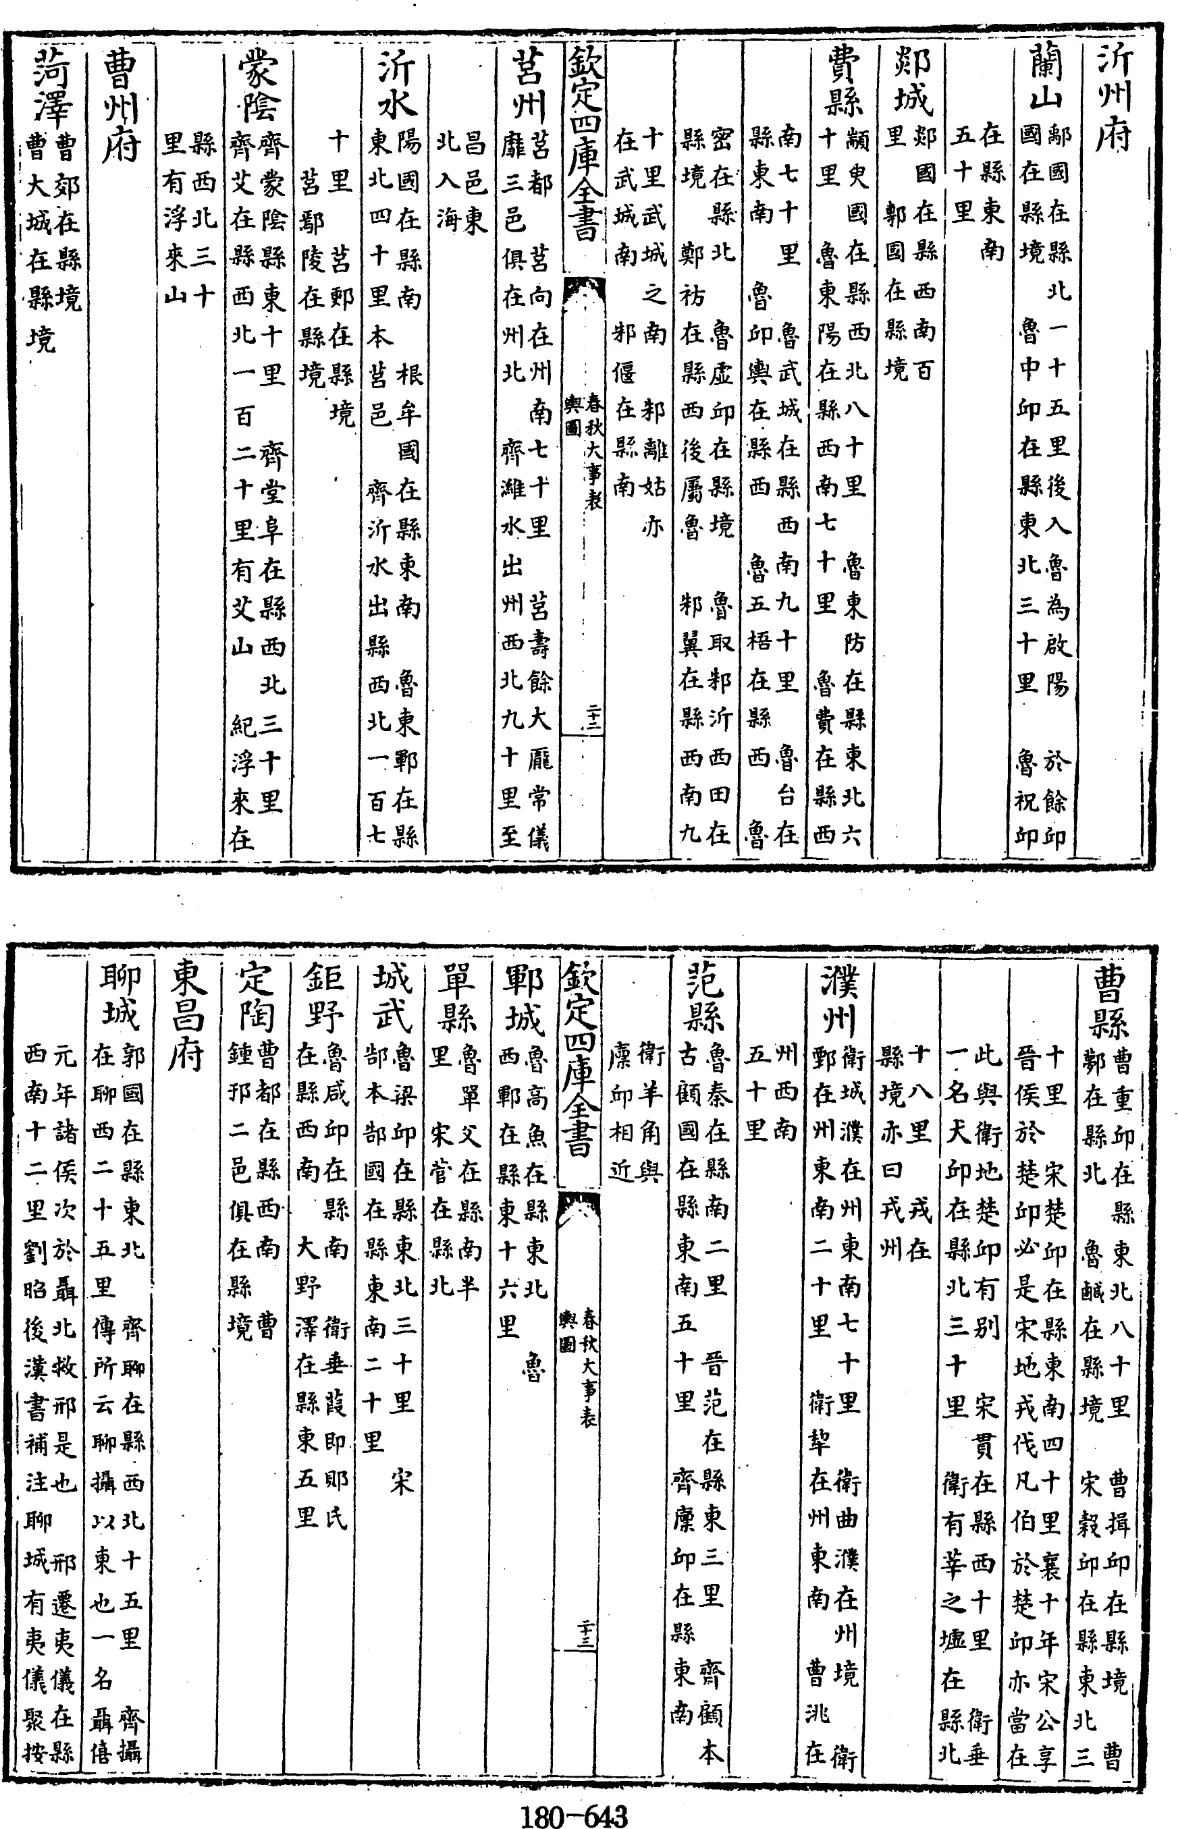 沂州府
蘭山鄅國在縣北一十五里後入魯為啟陽　於餘邱
國在縣境　魯中邱在縣東北三十里　魯祝邱
在縣東南
五十里
郯城郯國在縣西南百
里　鄣國在縣境
費縣顓臾國在縣西北八十里　魯東防在縣東北六
十里　魯東陽在縣西南七十里　魯費在縣西
南七十里　魯武城在縣西南九十里　魯台在
縣東南　魯卬輿在縣西　魯五梧在縣西　魯
密在縣北　魯虛邱在縣境　魯取邾沂西田在
縣境　鄭祊在縣西後屬魯　邾翼在縣西南九
十里武城之南　邾離姑亦
在武城南　邾偃在縣南
欽定四庫全書
春秋大事表
輿圖
二十二
莒州莒都　莒向在州南七十里　莒壽餘大厖常儀
靡三邑俱在州北　齊濰水出州西北九十里至
昌邑東
北入海
沂水陽國在縣南　根牟國在縣東南　魯東鄆在縣
東北四十里本莒邑　齊沂水出縣西北一百七
十里　莒鄆在縣境
莒鄢陵在縣境
蒙陰齊蒙陰縣東十里　齊堂阜在縣西北三十里
齊艾在縣西北一百二十里有艾山　紀浮來在
縣西北三十
里有浮來山
曹州府
菏澤曹郊在縣境
曹大城在縣境
曹縣曹重邱在縣東北八十里　曹揖邱在縣境　曹
鄸在縣北　魯鹹在縣境　宋穀邱在縣東北三
十里　宋楚邱在縣東南四十里襄十年宋公享
晉侯於楚邱必是宋地戎伐凡伯於楚邱亦當在
此與衛地楚邱有別　宋貫在縣西十里　衛垂
一名犬邱在縣北三十里　衛有莘之墟在縣北
十八里　戎在
縣境亦曰戎州
濮州衛城濮在州東南七十里　衛曲濮在州境　衛
鄄在州東南二十里　衛犂在州東南　曹洮在
州西南
五十里
范縣魯秦在縣南二里　晉范在縣東三里　齊顧本
古顧國在縣東南五十里　齊廩邱在縣東南
衛羊角與
廩邱相近
欽定四庫全書
春秋大事表
輿圖
二十三
鄆城魯高魚在縣東北　魯
西鄆在縣東十六里
單縣魯單父在縣南半
里　宋菅在縣北
城武魯梁邱在縣東北三十里　宋
郜本郜國在縣東南二十里
鉅野魯咸邱在縣南　衛垂葭即郹氏
在縣西南　大野澤在縣東五里
定陶曹都在縣西南　曹
鍾邘二邑俱在縣境
東昌府
聊城郭國在縣東北　齊聊在縣西北十五里　齊攝
在聊西二十五里傳所云聊攝以東也一名聶僖
元年諸侯次於聶北救邢是也　邢遷夷儀在縣
西南十二里劉昭後漢書補注聊城有夷儀聚按
180-643